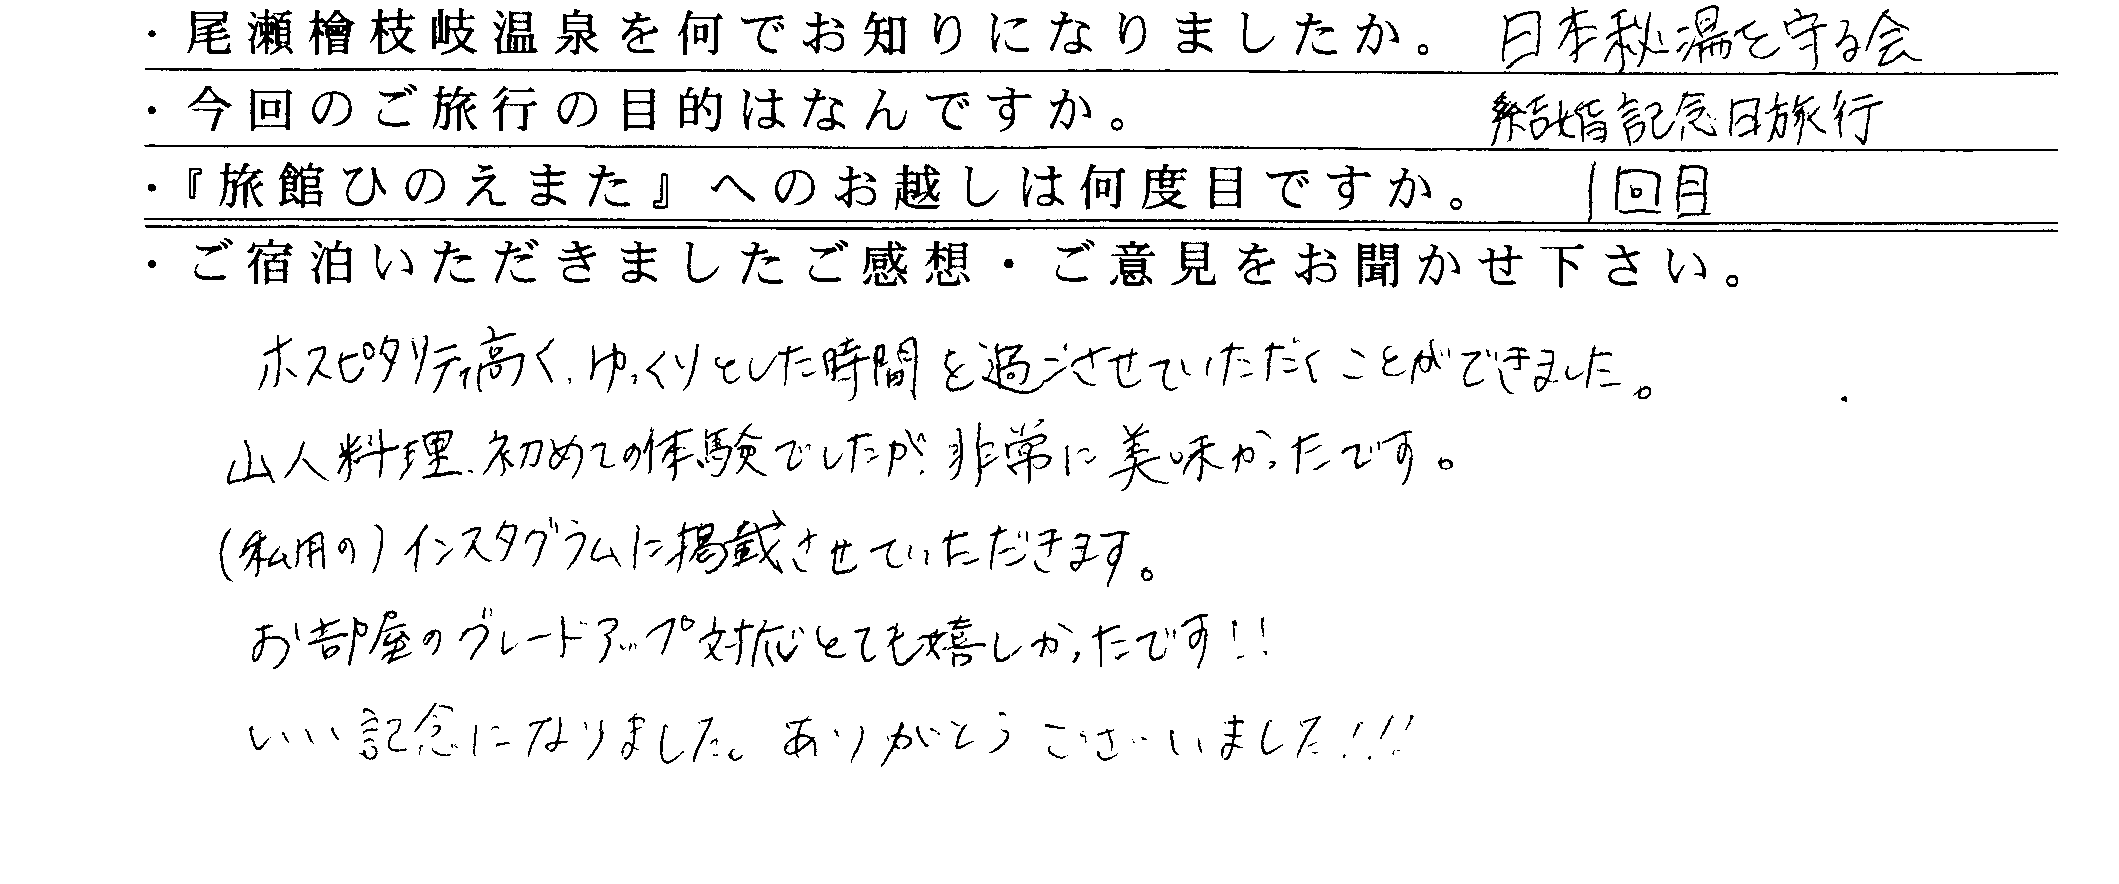 ・尾瀬檜枝岐温泉を何でお知りになりましたか。 日本秘湯を守る会
・今回のご旅行の目的はなんですか。 結婚記念日旅行
・『旅館ひのえまた』へのお越しは何度目ですか。 1回目
・ご宿泊いただきましたご感想・ご意見をお聞かせ下さい。
ホスピタリティ高く、ゆっくりとした時間を過ごさせていただくことができました。
山人料理、初めての体験でしたが、非常に美味かったです。
(私用の)インスタグラムに掲載させていただきます。
お部屋のグレードアップ対応とても嬉しかったです!!
いい記念になりました。ありがとうございました!!!